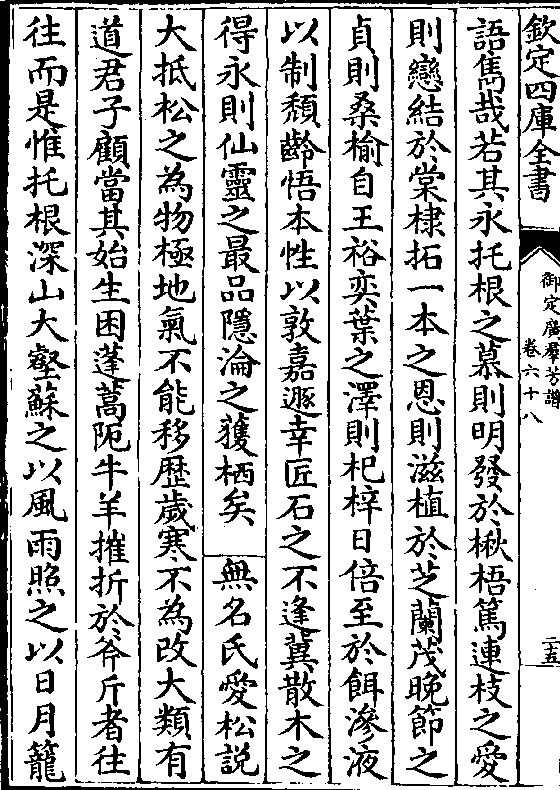 欽定四庫全書
御定廣羣芳譜
卷六十八
二五
語雋哉若其永托根之慕則明發於楸梧篤連枝之愛
則戀結於棠棣拓一本之恩則滋植於芝蘭茂晚節之
貞則桑榆自王裕奕葉之澤則杞梓日倍至於餌滲液
以制頽齡悟本性以敦嘉遯幸匠石之不逢冀散木之
得永則仙靈之最品隱淪之獲栖矣 無名氏愛松説
大抵松之為物極地氣不能移歴歲寒不為改大類有
道君子顧當其始生困蓬蒿阨牛羊摧折於斧斤者往
往而是惟托根深山大壑蘇之以風雨照之以日月籠